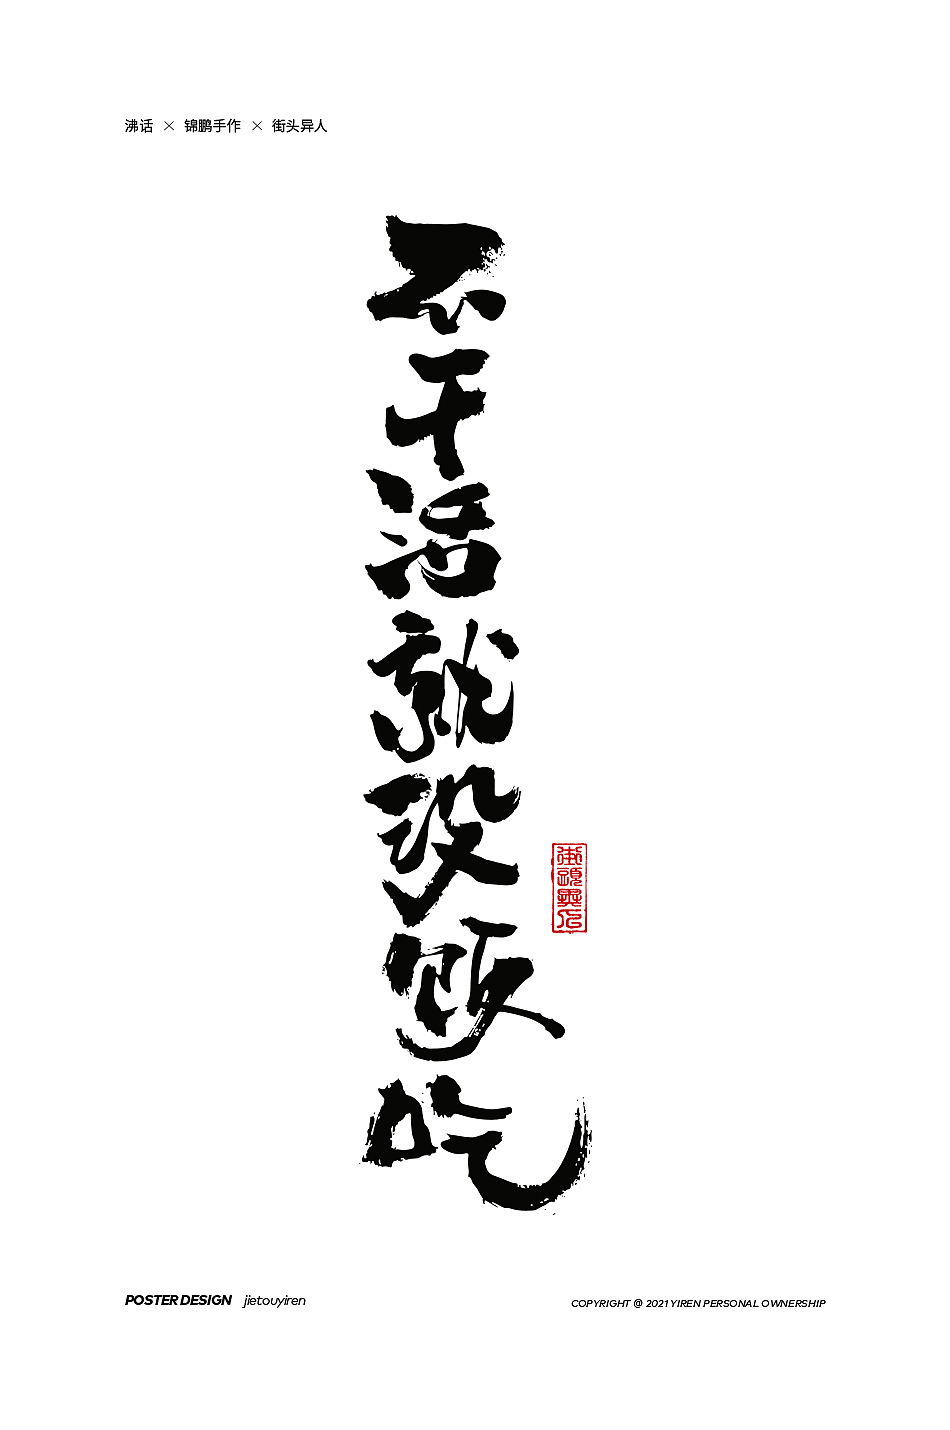 沸话 × 锦鹏手作 × 街头异人
不干活就没饭吃
街頭異人
POSTER DESIGN jietouyiren
COPYRIGHT @ 2021 YIREN PERSONAL OWNERSHIP